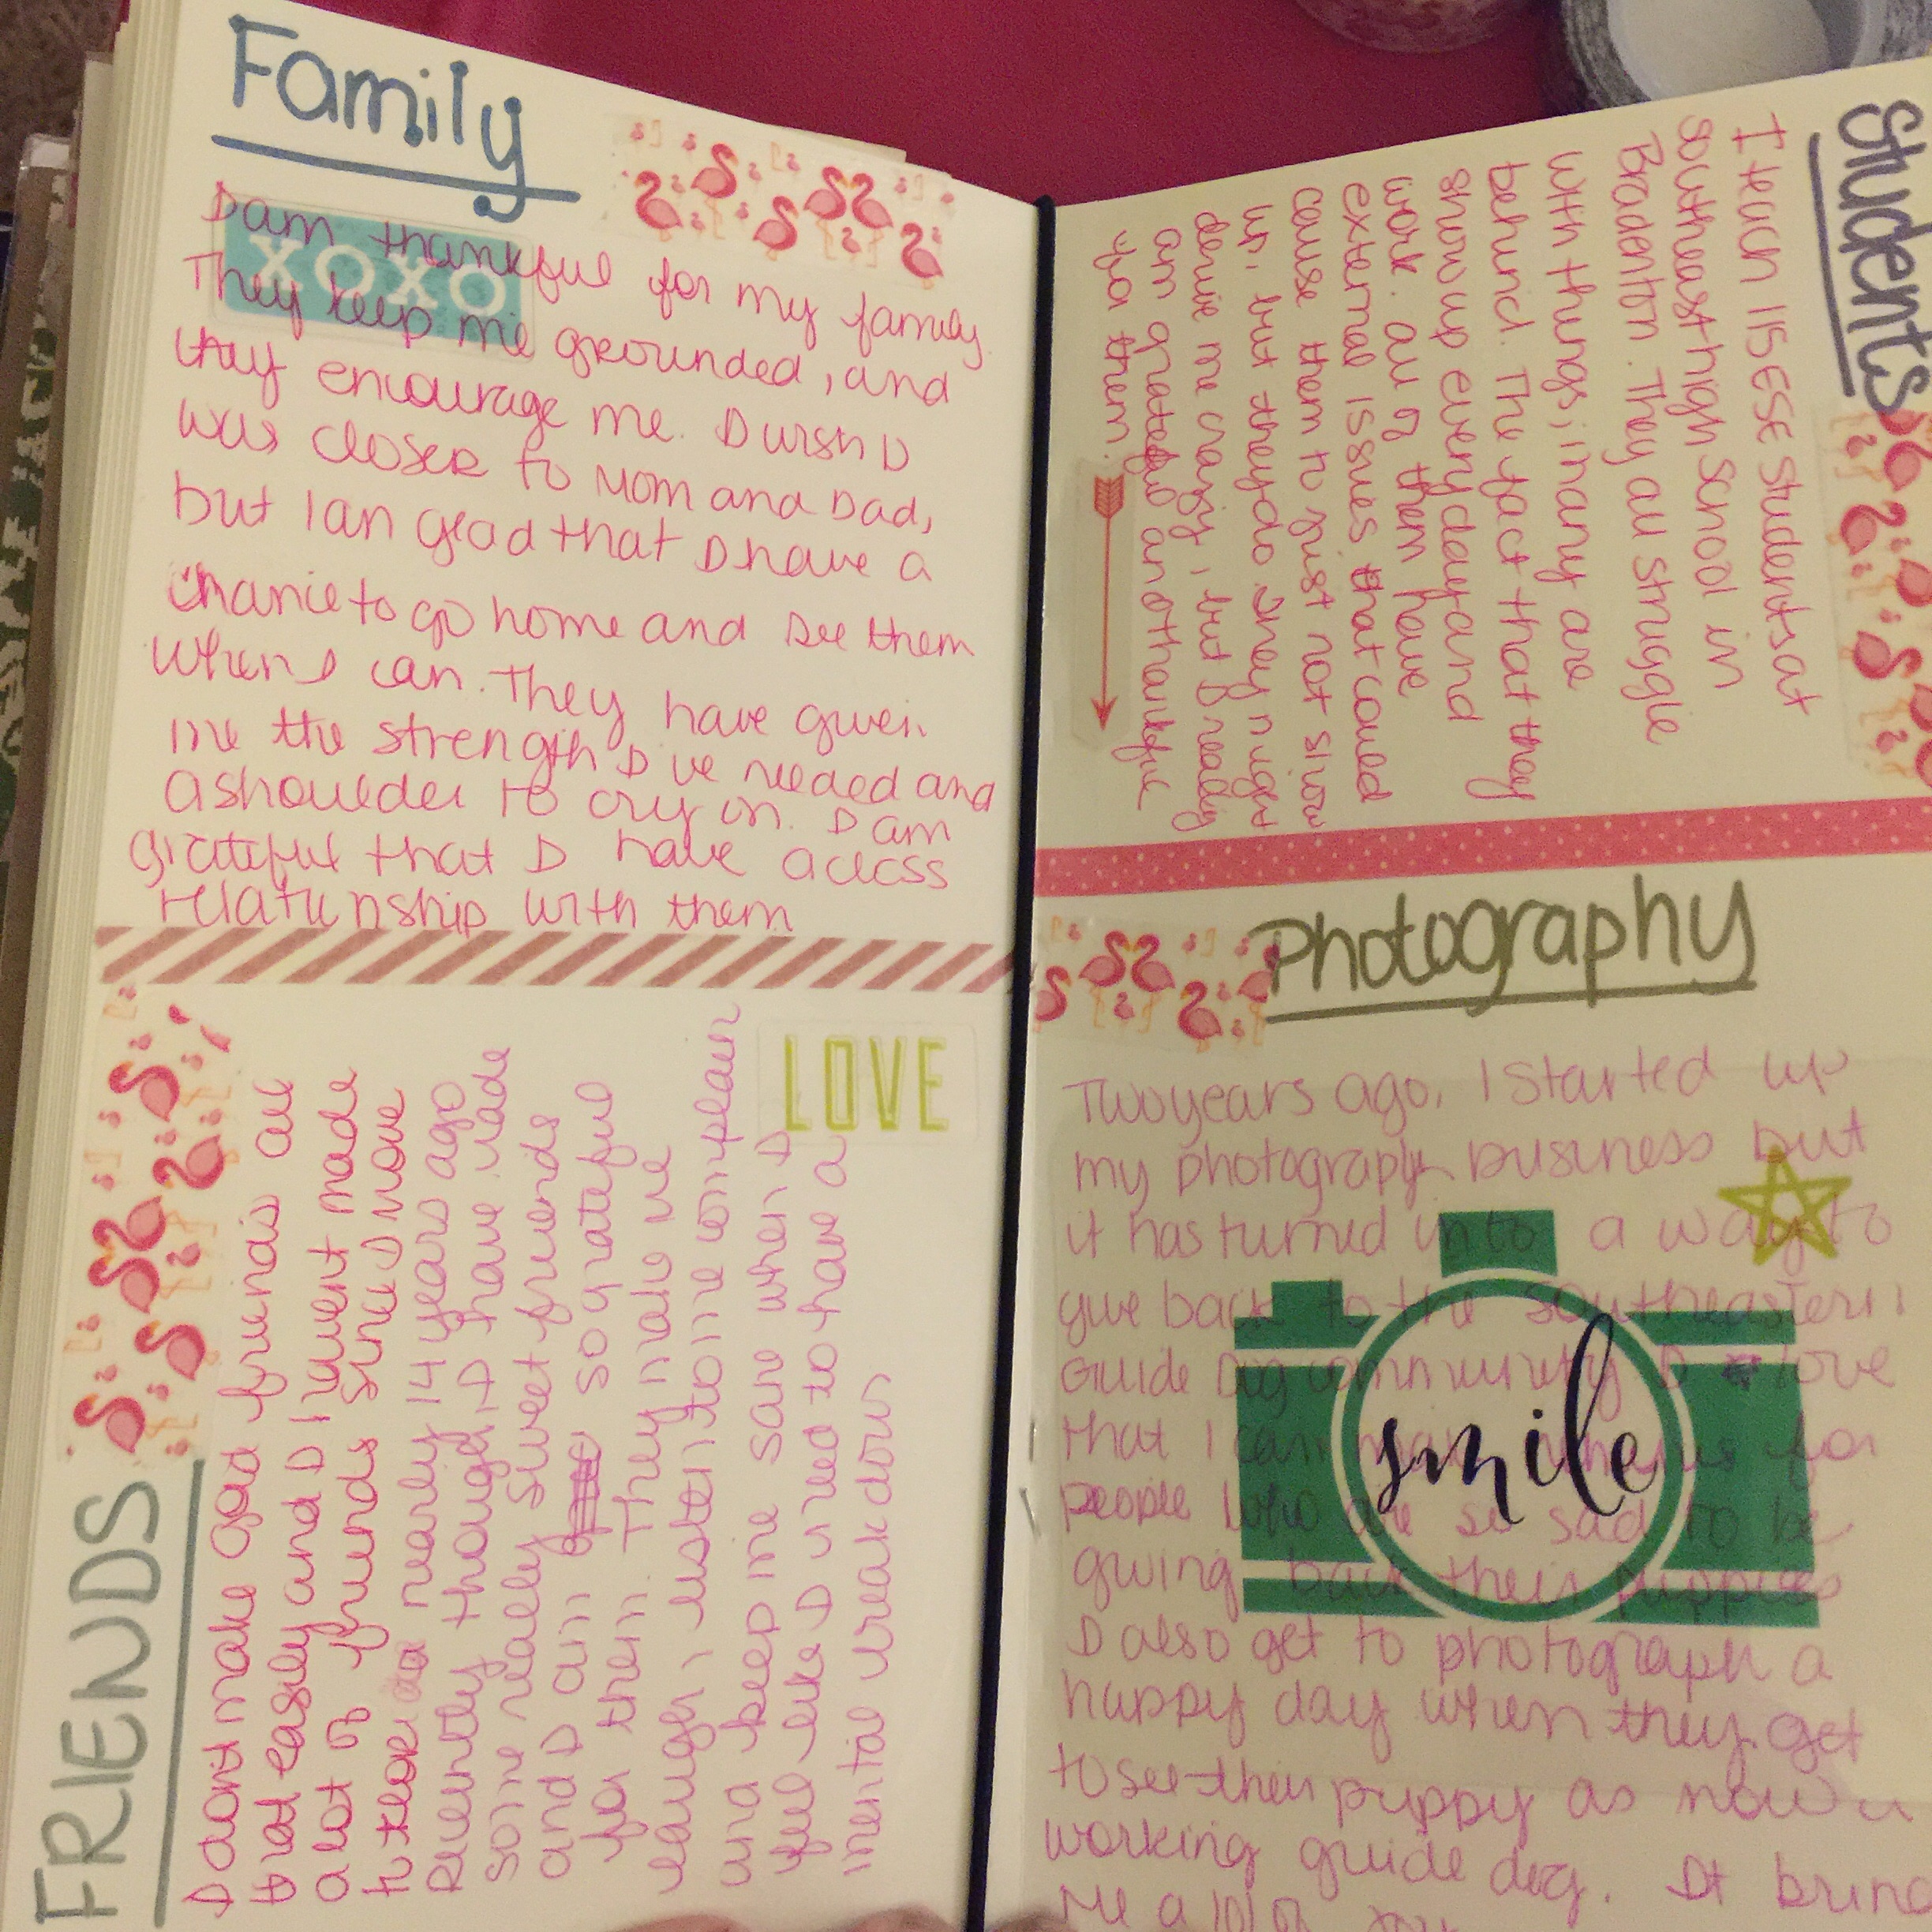 Family
XOXO
I am thankful for my family
They keep me grounded, and
they encourage me. I wish I
was closer to Mom and Dad,
but I am glad that I have a
chance to go home and see them
when I can. They have given
me the strength I've needed and
a shoulder to cry on. I am
grateful that I have a close
relationship with them
FRIENDS
LOVE
I don't make good friends all
that easily and I haven't made
a lot of friends since I move
to nearly 14 years ago
Recently though, I have made
some really sweet friends
and I am so grateful
for them. They make me
laugh, listen to me complain
and keep me sane when I
feel like I need to have a
mental breakdown
Students
I teach 115 ESE students at
Southeast high School in
Bradenton. They all struggle
with things, many are
behind. The fact that they
show up every day and
work. all of them have
external issues that could
cause them to just not show
up, but they do. They might
drive me crazy, but I really
am grateful and thankful
for them.
Photography
Two years ago, I started up
my photography business but
it has turned into a way to
give back to the southeastern
Guide Dog community I love
that I can for
people who are so sad to be
giving back their puppies
smile
I also get to photograph a
happy day when they get
to see their puppy as now a
working guide dog. It bring
me a lot of